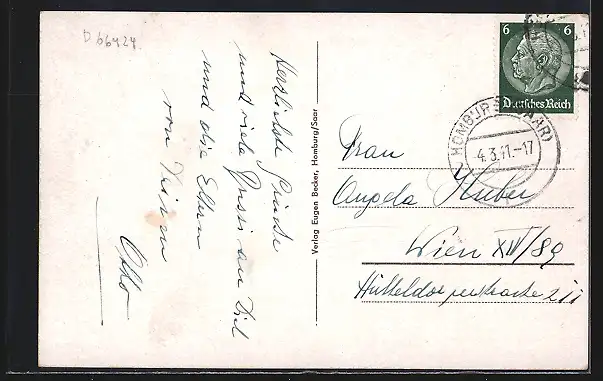 D 66424
Herzlichste Grüsse
und viele Grüsse an Dich
und die Eltern
von Deinem
Otto
Verlag Eugen Becker, Homburg/Saar
6 6
Deutsches Reich
HOMBURG (SAAR)
4.3.41.-17
Frau
Angela Huber
Wien XIV/89
Hütteldorferstrasse